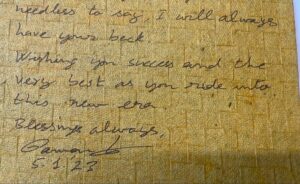 needless to say, I will always
have your back
Wishing you success and the
very best as you ride into
this new era.
Blessings always,
5.1.23